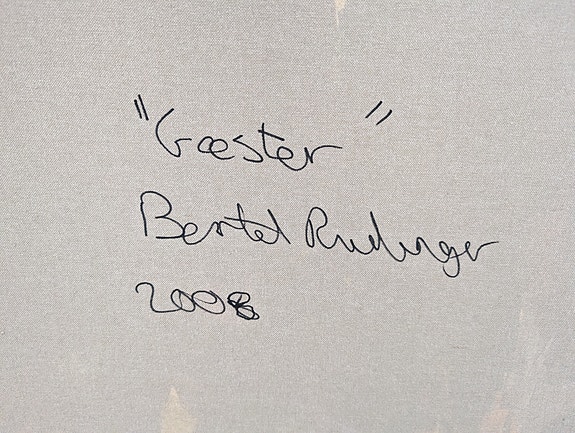 "Gæster"
Bertel Rudinger
2008